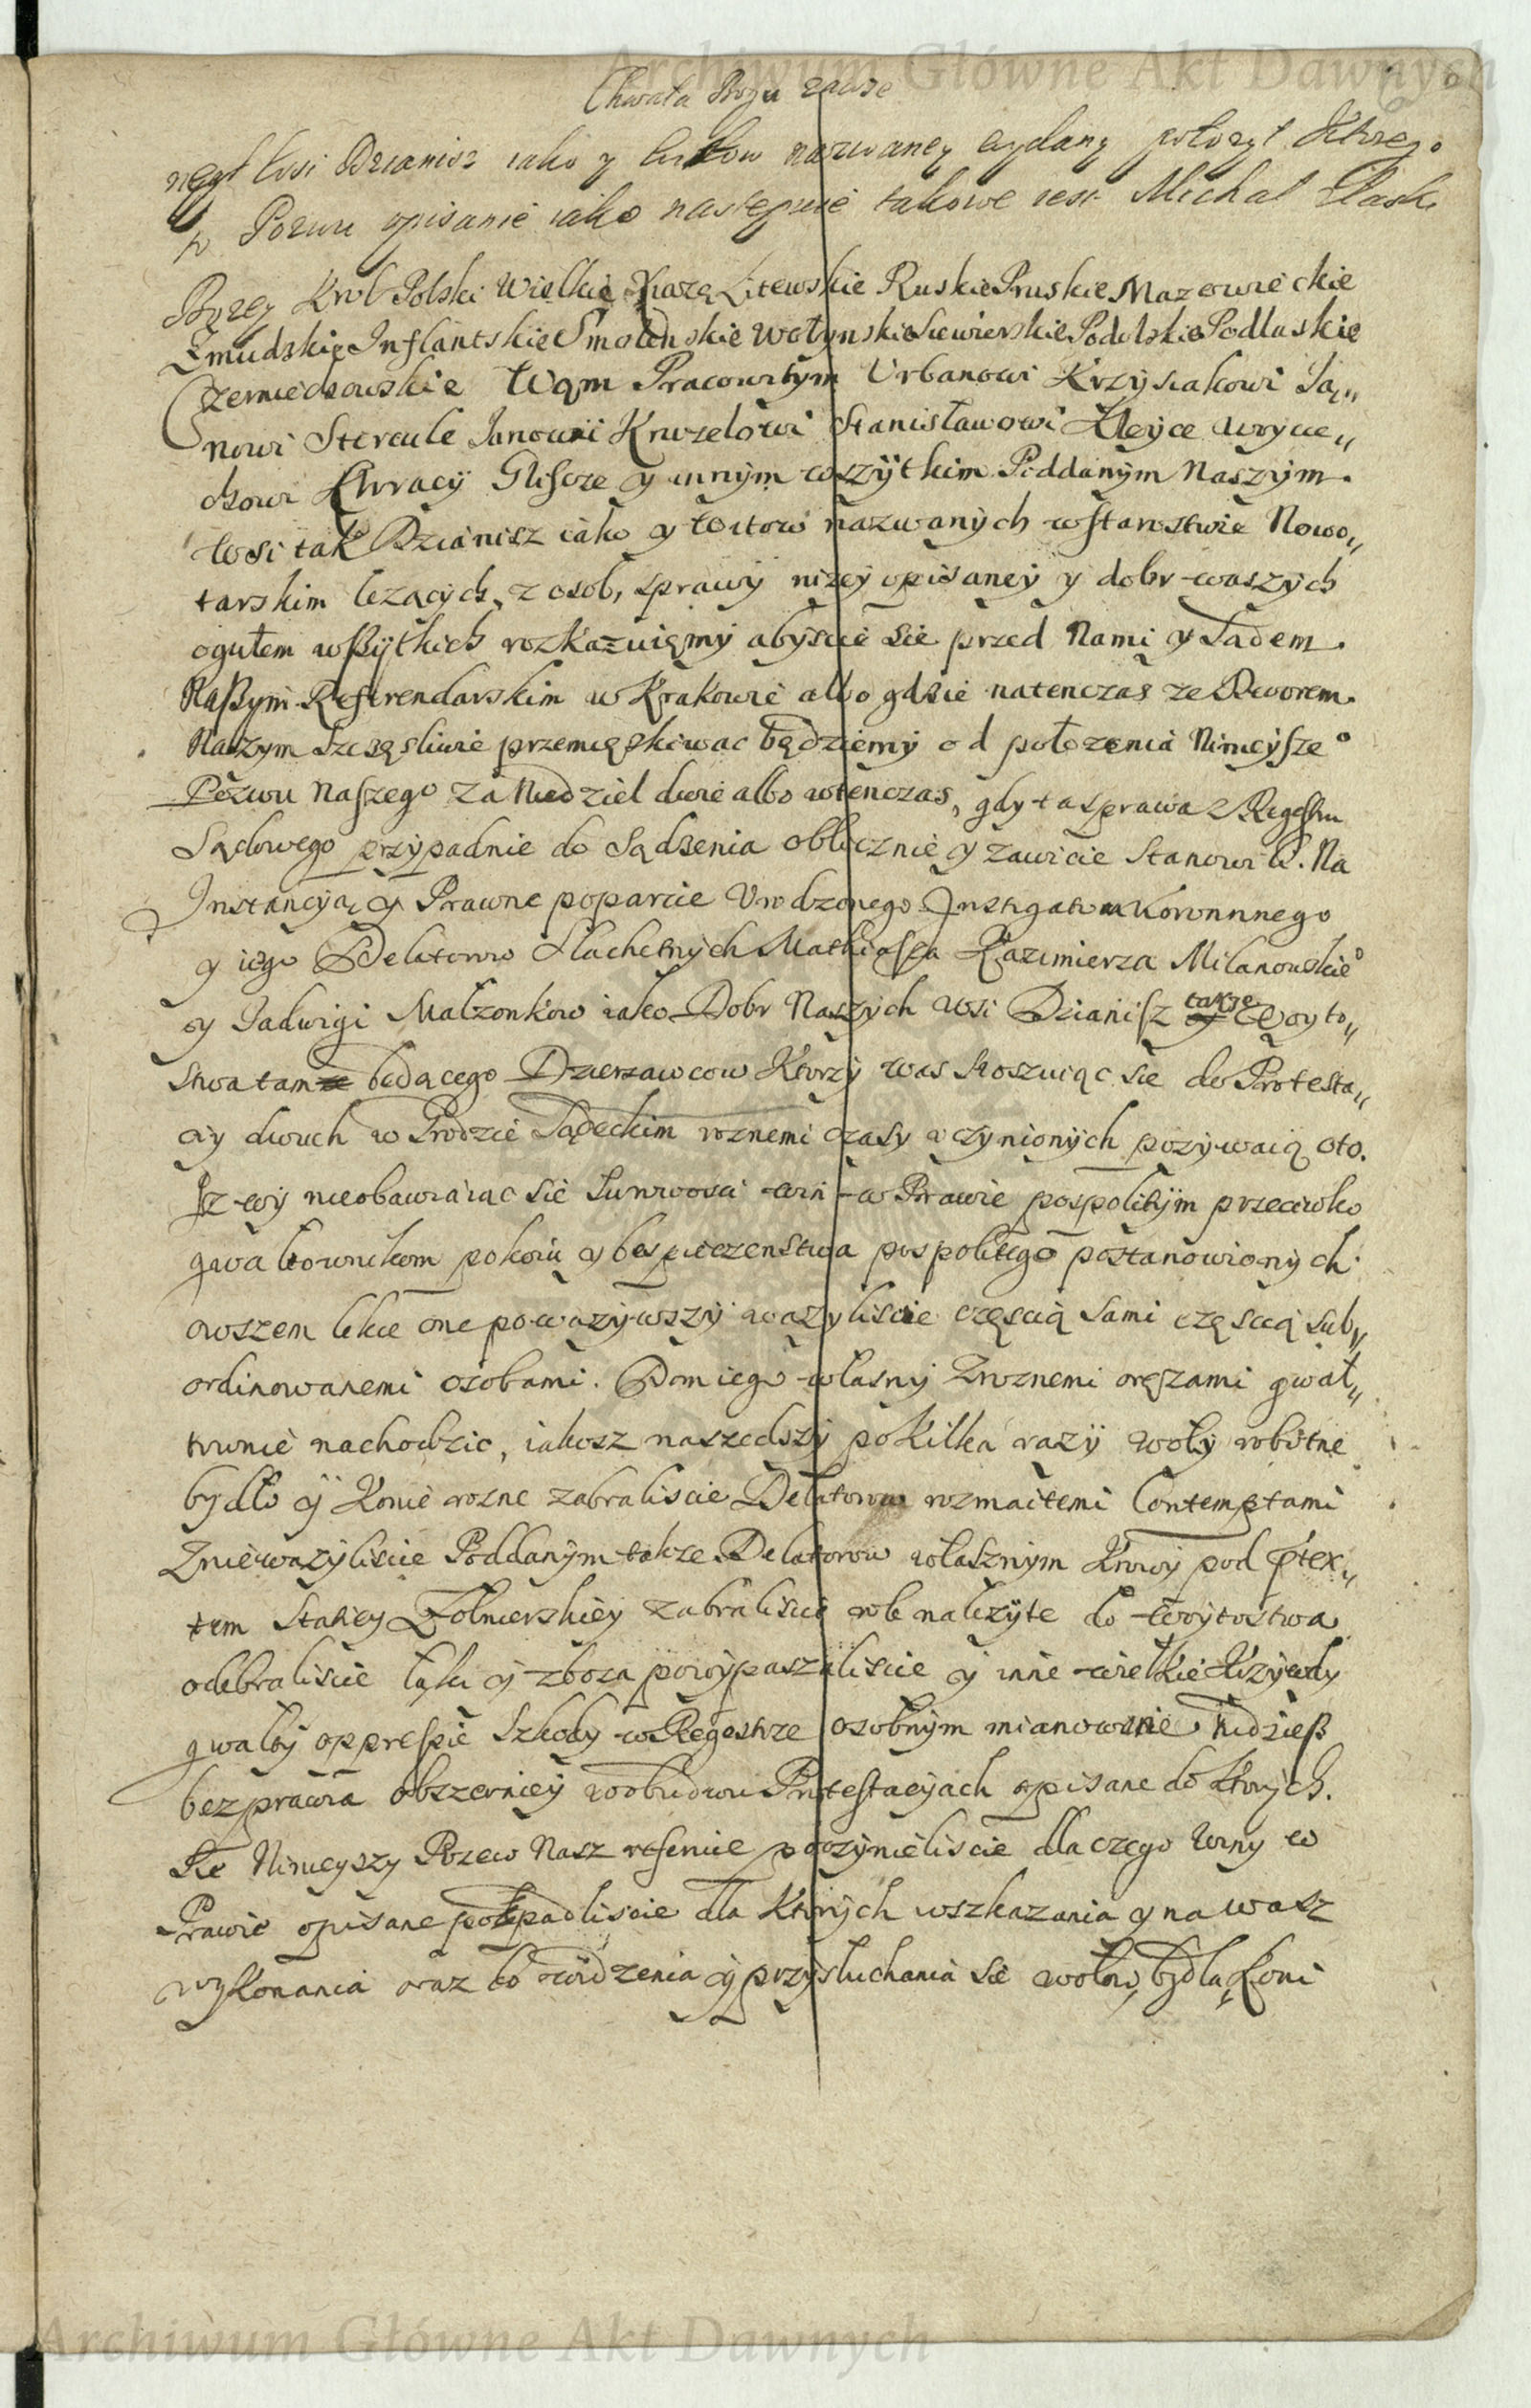 Archiwum Główne Akt Dawnych
Chwała Bogu zawsze
Wsi Dzianisz iako y nazwaney wydany położył Ktorego
Pozwu opisanie iako następuie takowe iest Michał z łaski
Bozey Krol Polski Wielkie Xiazę Litewskie Ruskie Pruskie Mazowieckie
Zmudzkie Inflantskie Smolenskie Wołynskie Siewierskie Podolskie Podlaskie
Czerniechowskie Wąm Pracowitym Urbanowi Krzysiakowi Ja„
nowi Stercule Janowi Kruzelowi Stanisławowi Kleyce woycie„
chowi y innym wszytkim Poddanym Naszym
Wsi tak Dzianisz iako y Witow nazwanych w starostwie Nowo„
tarskim lezących, z osob, sprawy nizey opisaney y dobr waszych
ogułem wszytkich rozkazuiemy abyscie sie przed Nami y Sadem
Naszym Referendarskim w Krakowie albo gdzie natenczas ze Dworem
Naszym szczęsliwie przemięszkiwac będziemy od połozenia Ninieysze°
Pozwu Naszego za Niedziel dwie albo wtenczas, gdy ta sprawa z Regestru
Sądowego przypadnie do sądzenia oblicznie y zawicie stanowili. Na
Instancyą y Prawne poparcie Urodzonego Instigatora Koronnnego
y iego Delatorow Slachetnych Mathiasza Kazimierza Milanowskie°
y Jadwigi Małzonkow iako Dobr Naszych Wsi Dzianisz takze Woyto„
stwa tam będącego Dzierzawcow Ktorzy was stoszuiąc sie do Protesta„
cyi dwuch w Grodzie Sądeckim roznemi czasy uczynionych pozywaią oto.
Iz wy nieobawiaiąc sie surowosci win w Prawie pospolitym przeciwko
gwałtownikom pokoiu y bespieczenstwa pospolitego postanowionych
owszem lekce one powazywszy wazyliscie częscią sami częscią sub„
ordinowanemi osobami. Dom iego własny z roznemi oręzami gwał„
townie nachodzic, iakosz naszedszy po kilka razy woły robotne
bydło y Konie rozne zabraliscie Delatorow rozmaitemi Contemptami
zniewazyliscie Poddanym takze Delatorow własznym Krowy pod ptex„
tem Staciey Zołnierskiey zabraliscie role nalezyte do Woytostwa
odebraliscie łąki y zboza powypaszaliscie y inne wielkie Krzywdy
gwałty oppresie szkody w Regestrze osobnym mianowicie tudziesz
bezprawia obszerniey w obudwu Protestacyiach opisane do Ktorych
sie Ninieyszy Pozew Nasz referuie poczynieliscie dla czego winy w
Prawie opisane popadliscie dla Ktorych wszkazania y na wasz
wykonania oraz do widzenia y przysłuchania sie wołow, bydła, Koni
Archiwum Główne Akt Dawnych